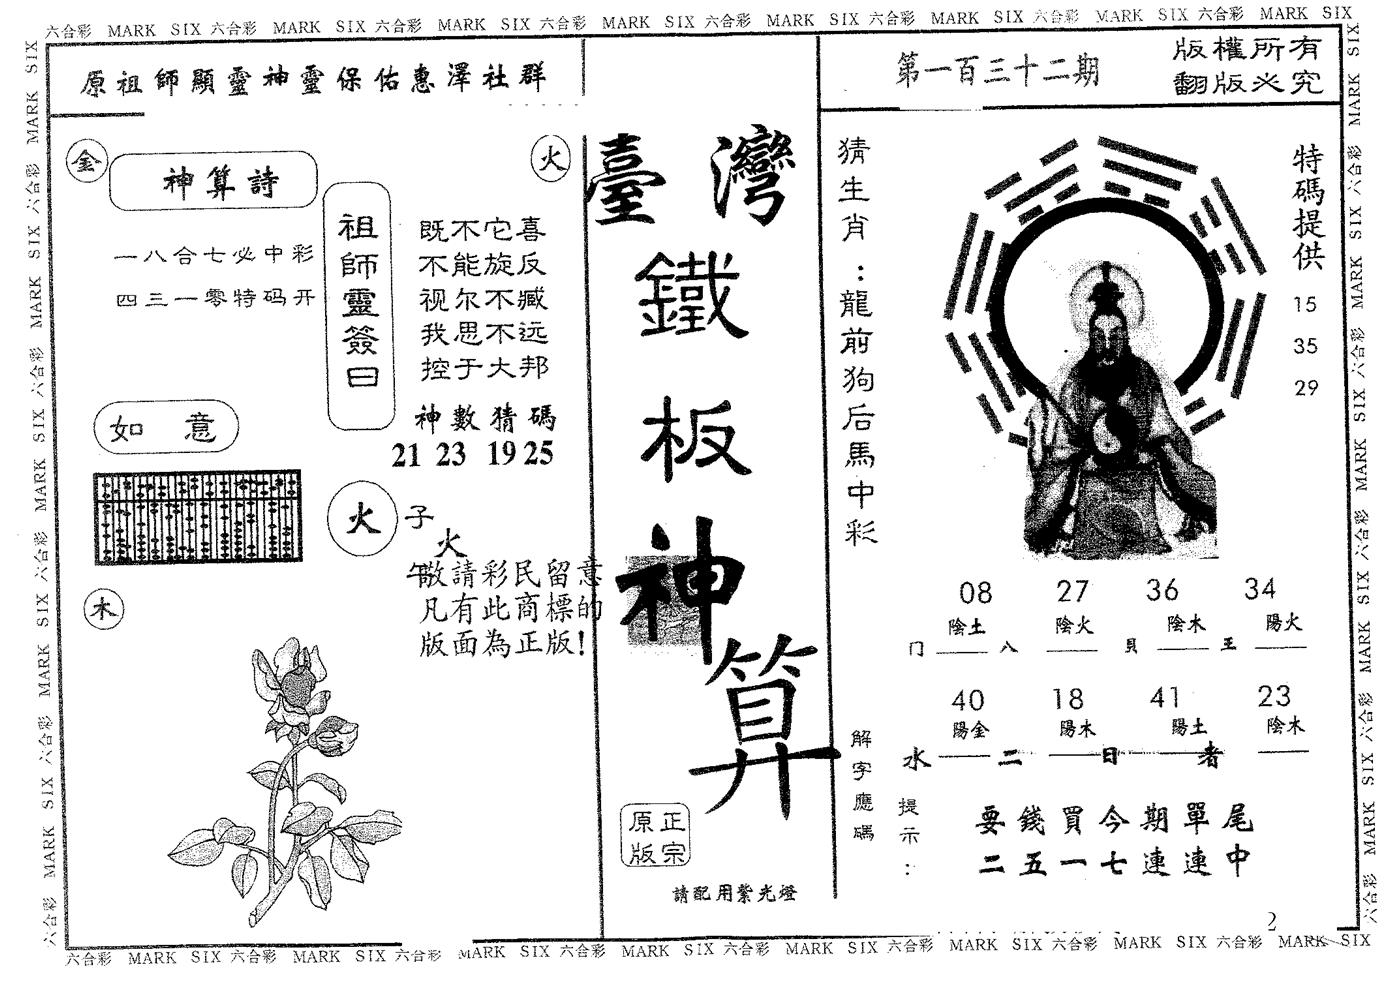 六合彩 MARK SIX 六合彩 MARK SIX 六合彩 MARK SIX 六合彩 MARK SIX 六合彩 MARK SIX 六合彩 MARK SIX 六合彩 MARK SIX 六合彩 MARK SIX
原祖師顯靈神靈保佑惠澤社群
金
火
神算詩
一八合七必中彩
四三一零特码开
祖師靈簽曰
既不它喜
不能旋反
视尔不臧
我思不远
控于大邦
神數猜碼
21 23 19 25
如意
火
子
火
午
敬請彩民留意
凡有此商標的
版面為正版!
木
臺灣
鐵
板
神
算
原正
版宗
請配用紫光燈
第一百三十二期
版權所有
翻版必究
猜生肖:龍前狗后馬中彩
特碼提供
15
35
29
08 27 36 34
陰土 陰火 陰木 陽火
门 八 貝 王
40 18 41 23
陽金 陽木 陽土 陰木
水 二 日 者
解字應碼
提示:
要錢買今期單尾
二五一七連連中
2
六合彩 MARK SIX 六合彩 MARK SIX 六合彩 MARK SIX 六合彩 MARK SIX 六合彩 MARK SIX 六合彩 MARK SIX 六合彩 MARK SIX 六合彩 MARK SIX